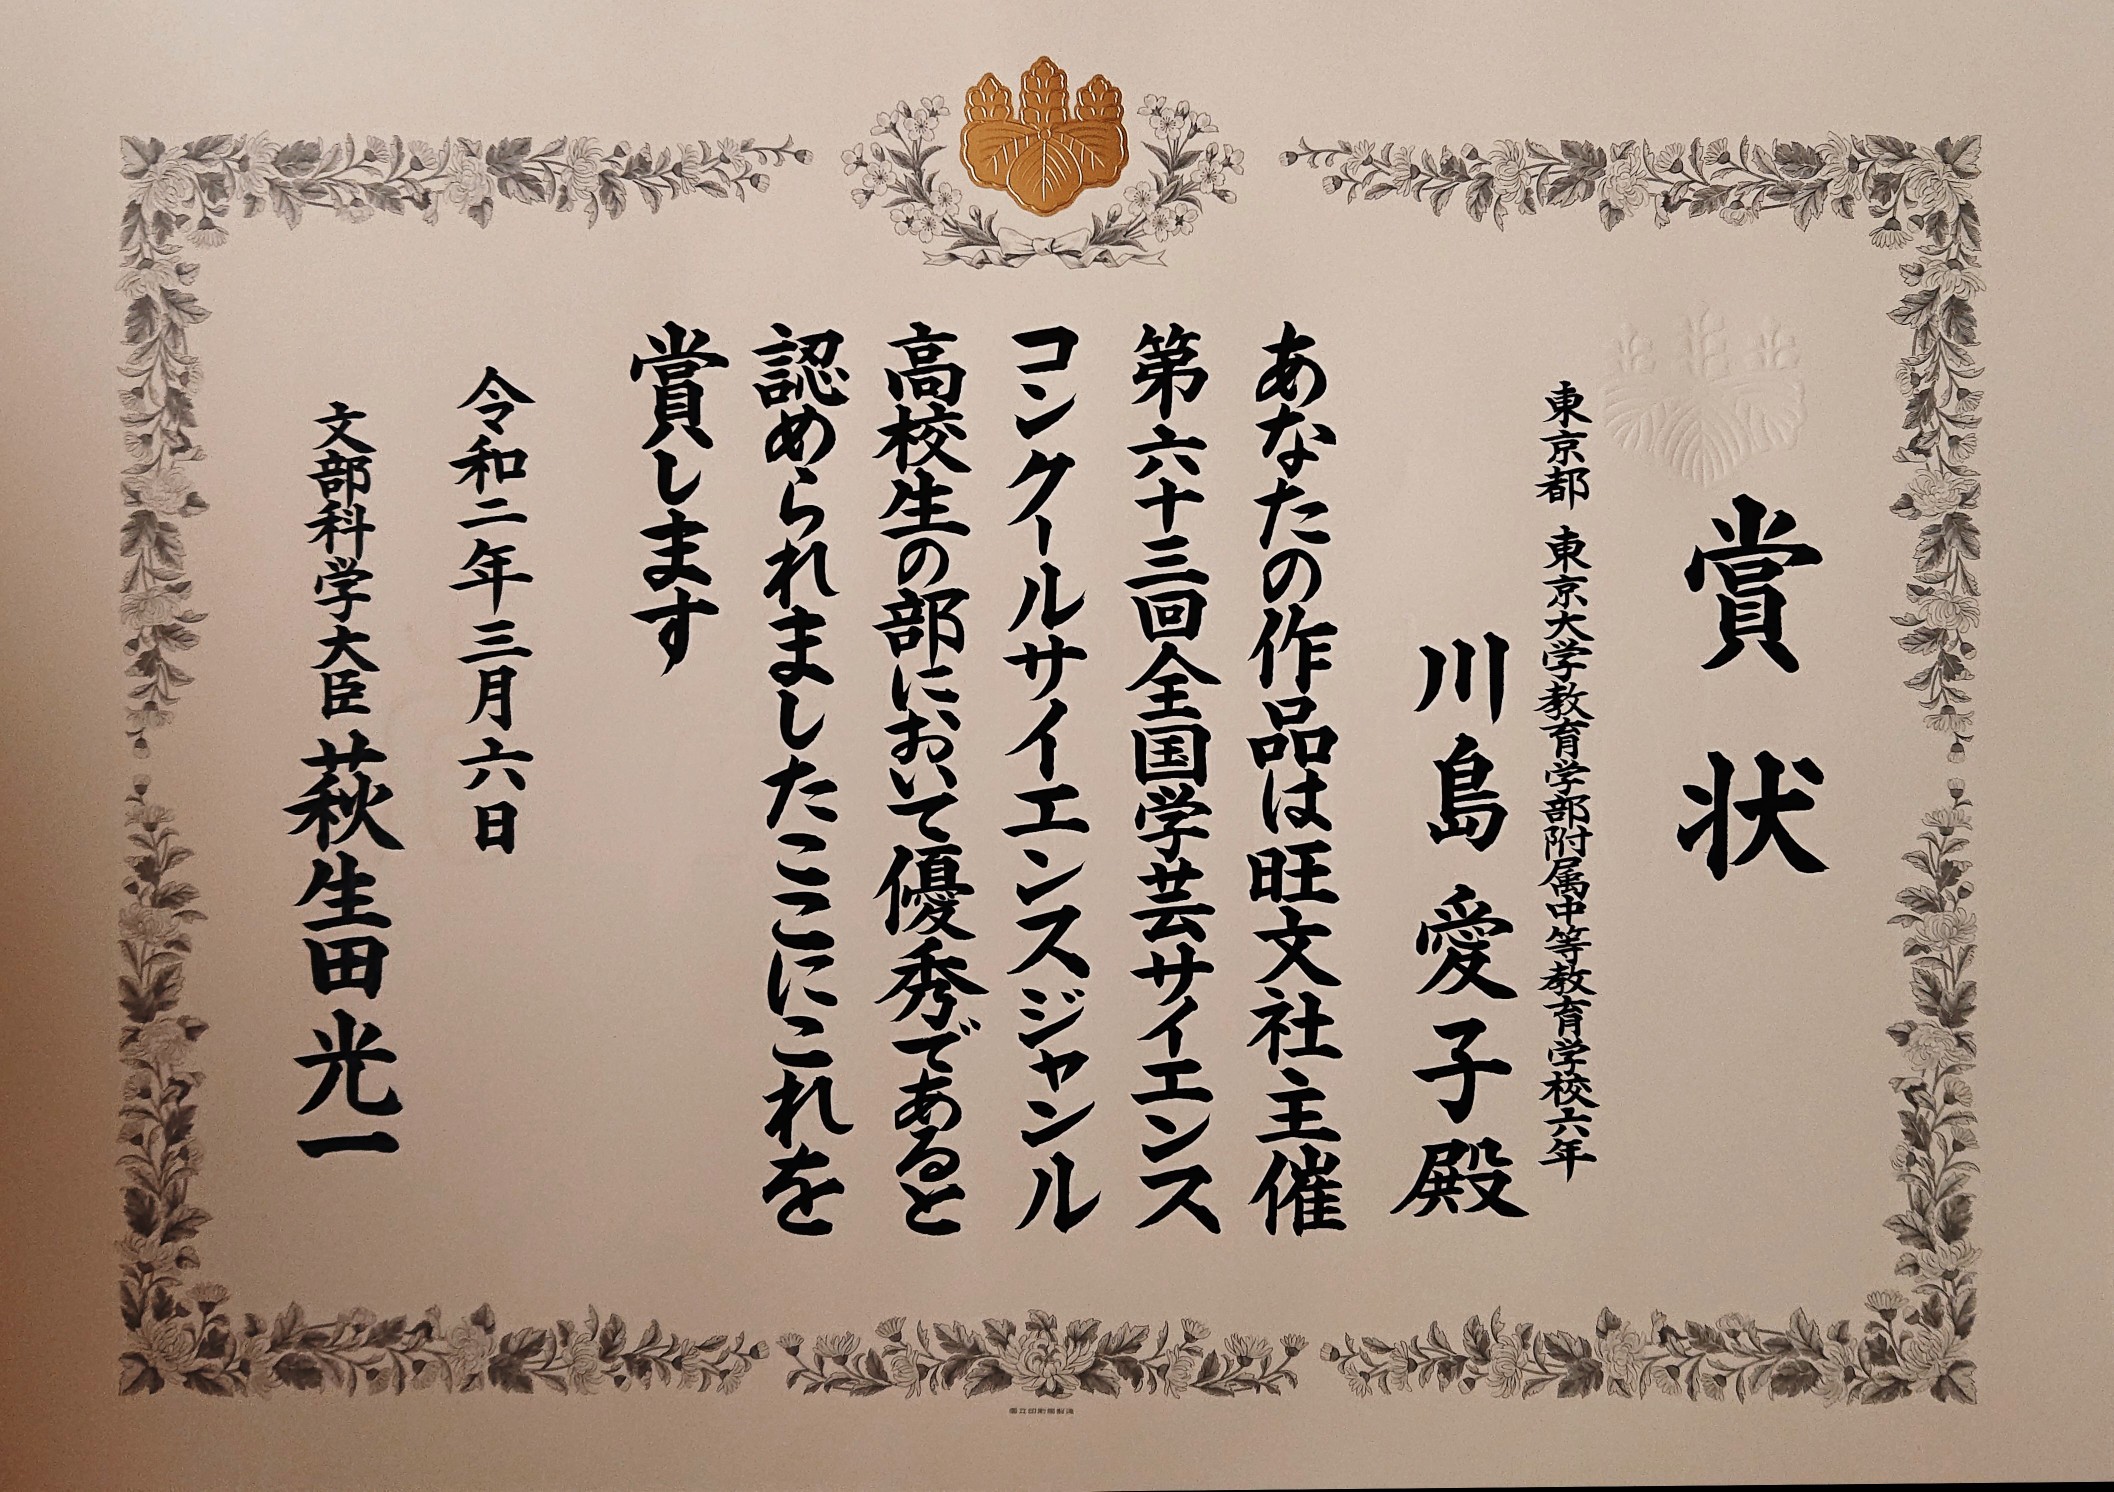 賞状
東京都 東京大学教育学部附属中等教育学校六年
川島愛子殿
あなたの作品は旺文社主催
第六十三回全国学芸サイエンス
コンクールサイエンスジャンル
高校生の部において優秀であると
認められましたここにこれを
賞します
令和二年三月六日
文部科学大臣 萩生田光一
国立印刷局製造